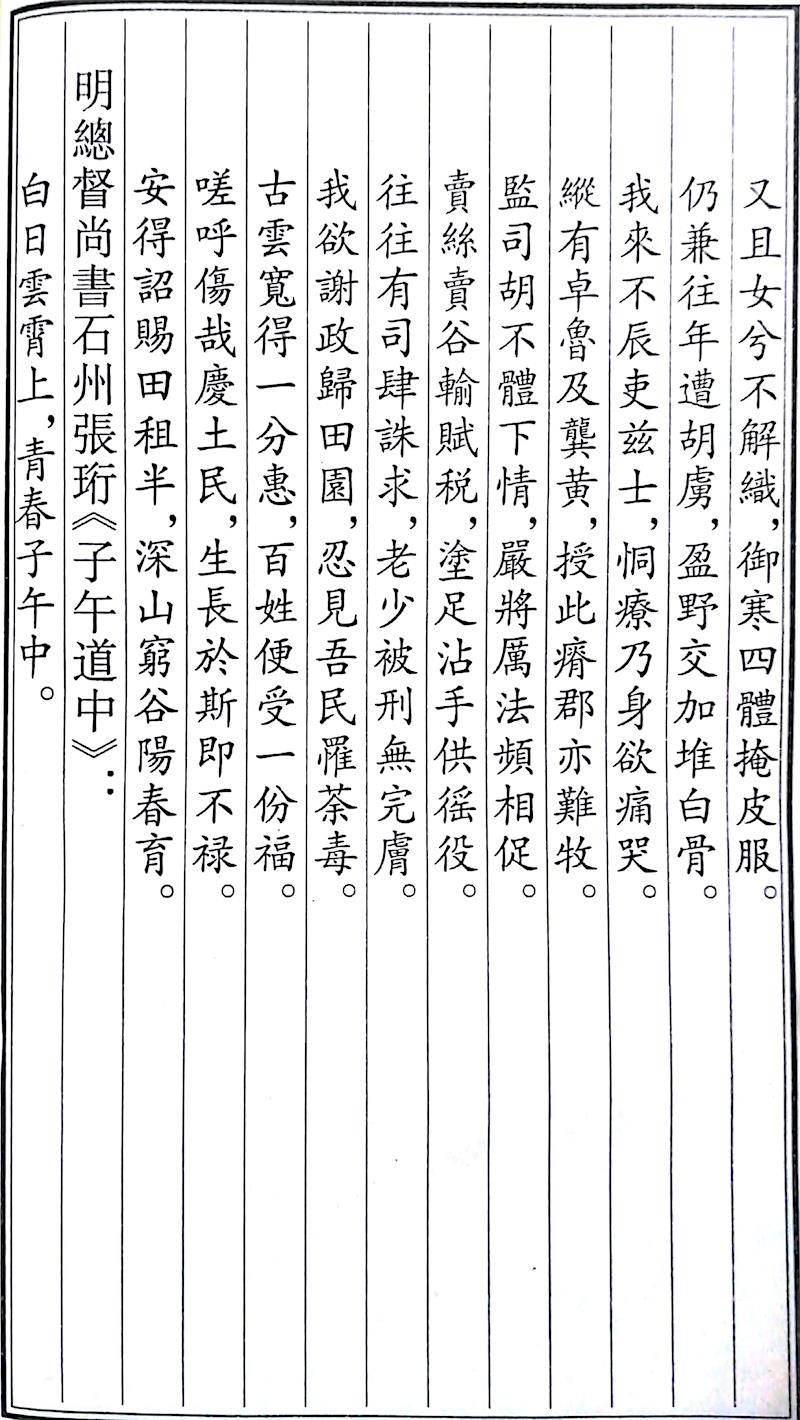 又且女兮不解織，御寒四體掩皮服。
仍兼往年遭胡虜，盈野交加堆白骨。
我來不辰吏兹士，恫瘝乃身欲痛哭。
縱有卓魯及龔黄，授此瘠郡亦難牧。
監司胡不體下情，嚴將厲法頻相促。
賣絲賣谷輸賦税，塗足沾手供徭役。
往往有司肆誅求，老少被刑無完膚。
我欲謝政歸田園，忍見吾民罹荼毒。
古雲寬得一分惠，百姓便受一份福。
嗟呼傷哉慶土民，生長於斯即不禄。
安得詔賜田租半，深山窮谷陽春育。
明總督尚書石州張珩《子午道中》：
白日雲霄上，青春子午中。